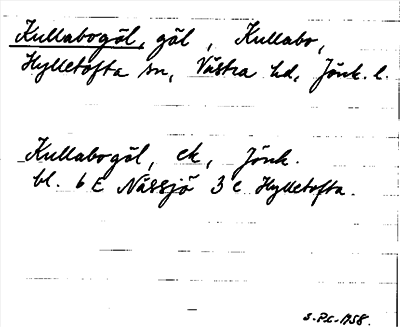 Kullabogöl, göl, Kullabo,
Hylletofta sn, Västra hd, Jönk. l.
Kullabogöl, ek, Jönk.
bl. 6 E Nässjö 3 c Hylletofta.